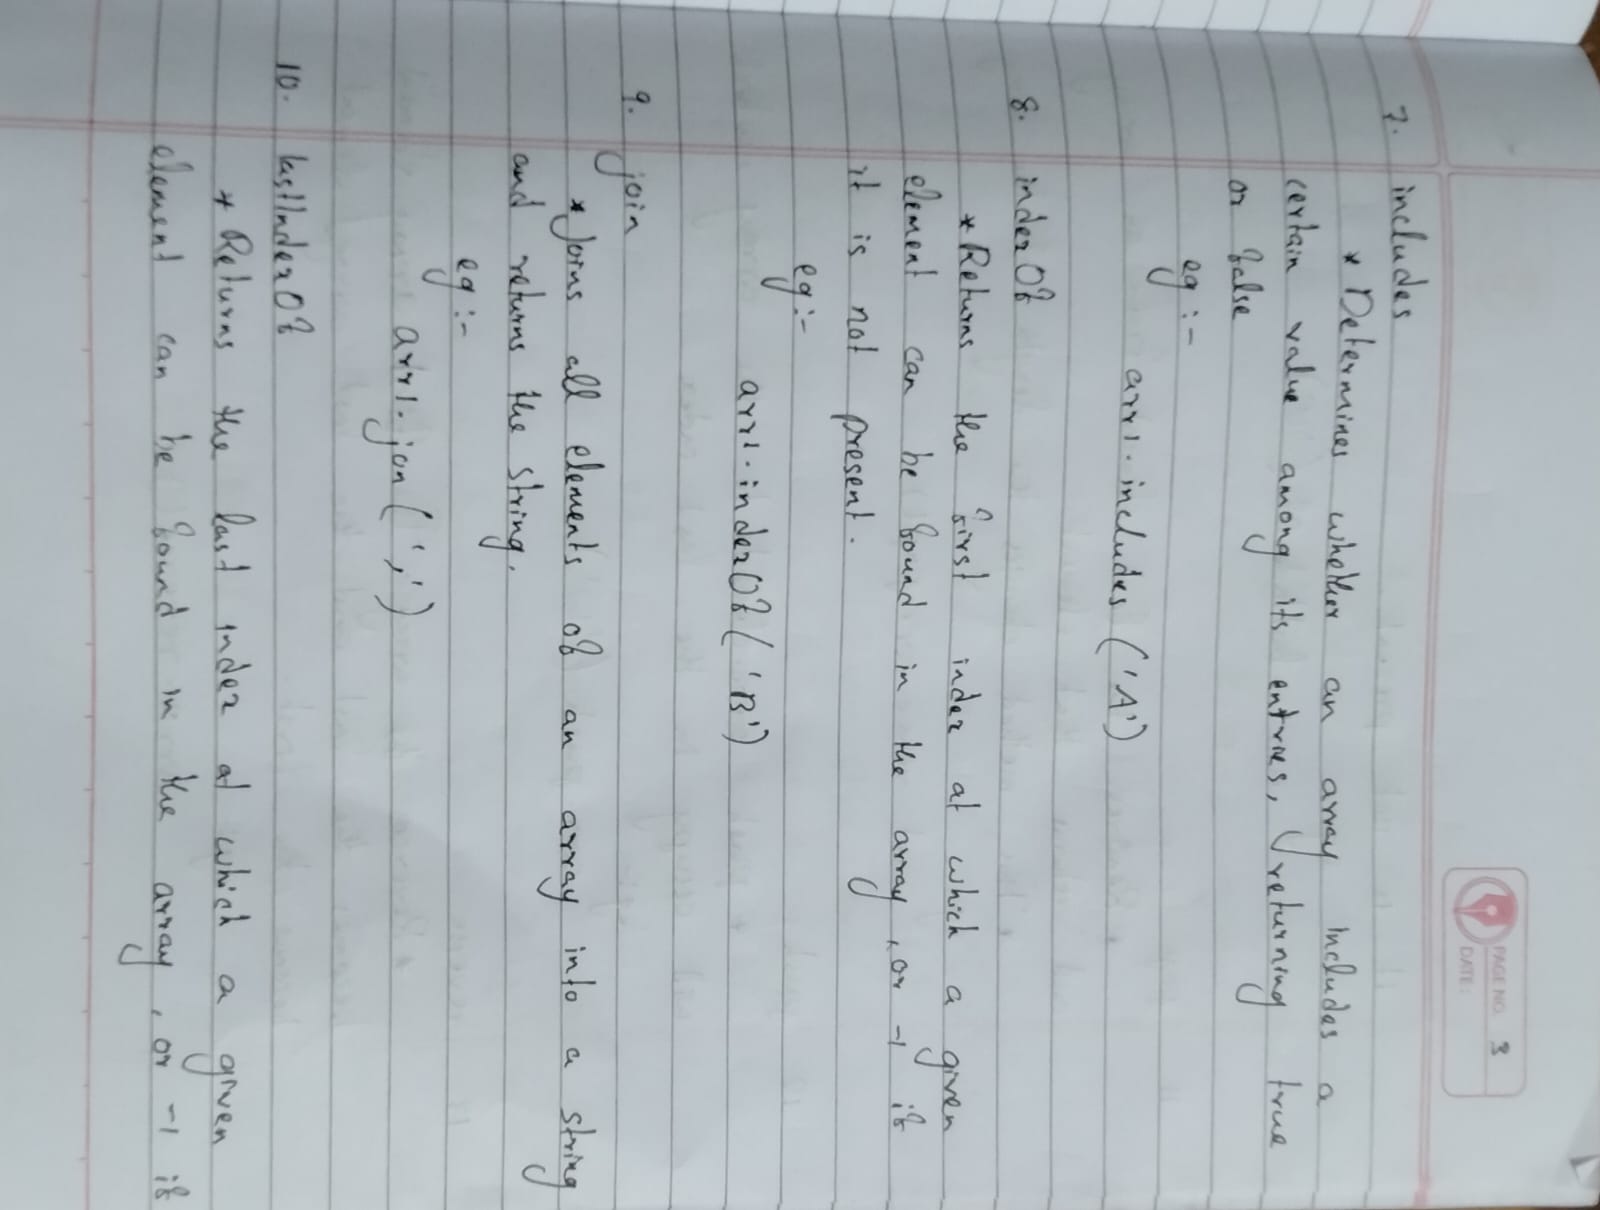 PAGE NO. 3
DATE:
7. includes
* Determines whether an array includes a
certain value among its entries, returning true
or false
eg :-
arr1.includes ('A')
8. indexOf
* Returns the first index at which a given
element can be found in the array, or -1 if
it is not present.
eg :-
arr1.indexOf ('B')
9. join
* Joins all elements of an array into a string
and returns the string.
eg :-
arr1.jon (',')
10. lastIndexOf
* Returns the last index at which a given
element can be found in the array, or -1 if